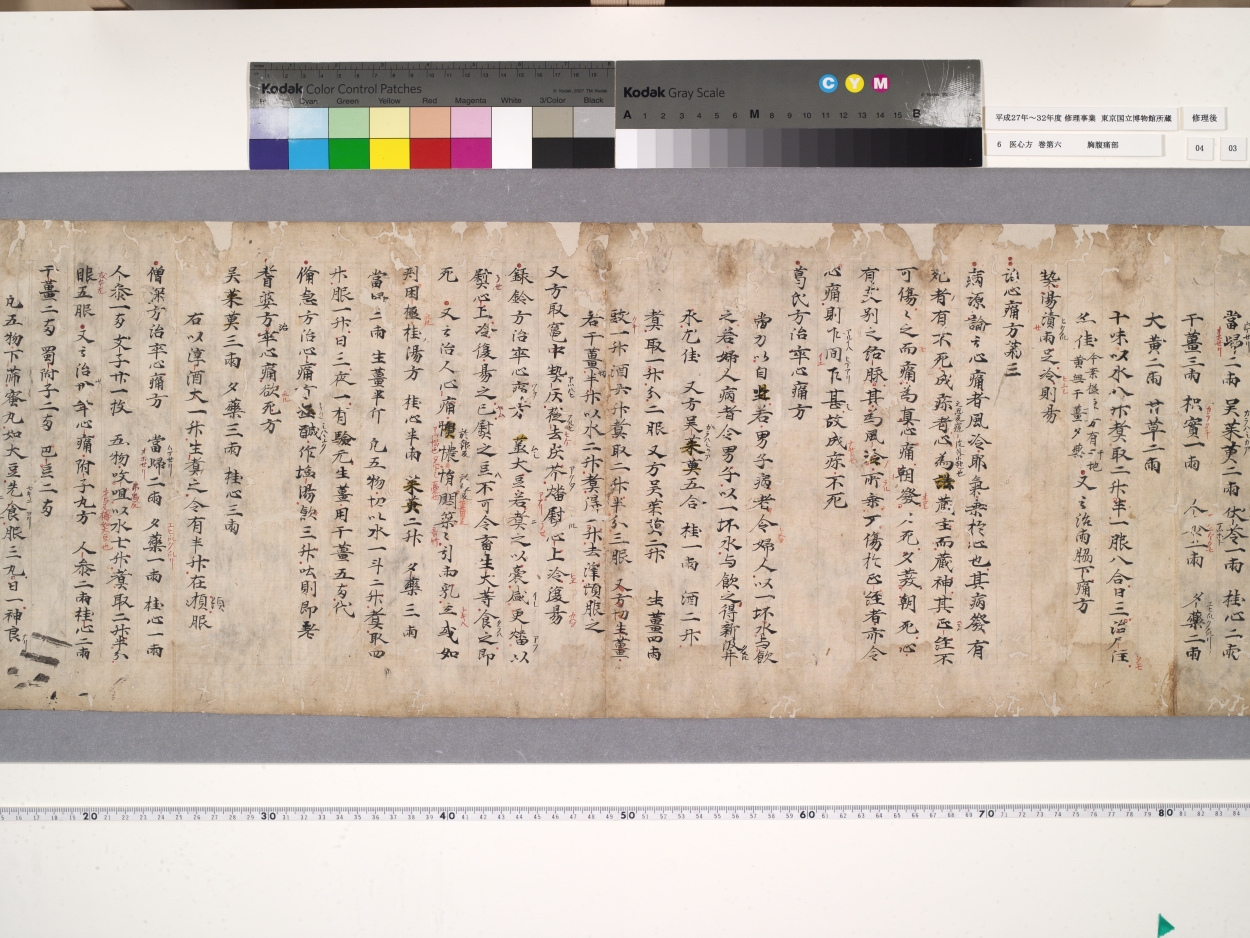 Kodak Color Control Patches
Cyan Green Yellow Red Magenta White 3/Color Black
Kodak Gray Scale
C Y M
A 1 2 3 4 5 6 M 8 9 10 11 12 13 14 15 B
平成27年～32年度 修理事業 東京国立博物館所蔵
修理後
6 医心方 巻第六 胸腹痛部
04
03
當歸二兩 吴茱萸二兩 伏苓一兩 桂心二兩
干薑三兩 枳實一兩 人参二兩 夕藥二兩
大黄二兩 甘草一兩
十味以水八升煮取二升半一服八合日三
熱湯漬兩足冷則易
治心痛方第三
病源論云心痛者風冷耶氣乘於心也其病發有
死者有不死成疹者心為諸蔵主而藏神其正經不
可傷之而痛為真心痛朝發夕死夕發朝死心
有支別之絡脉其為風冷所乘不傷於正經者亦令
心痛則乍間乍甚故成疹不死
葛氏方治卒心痛方
當力以自若男子病者令婦人以一坏水与飲
之若婦人病者令男子以一坏水与飲之得新汲井
水尤佳 又方吴茱萸五合 桂一兩 酒二升
煮取一升分二服 又方吴茱萸二升 生薑四兩
豉一升酒六升煮取二升半分三服 又方切生薑
若干薑半升以水二升煮得一升去滓頓服之
又方取竈中熱灰篩去炭芥熨心上冷復易
録鈴方治卒心痛方 蒸大豆若煮之以囊盛更燔以
熨心上冷復易之已熨之豆不可令畜生犬等食之即
死 又云治人心痛懊憹悁悶築之引兩乳或如
刺困極桂湯方 桂心半兩 茱萸二升 夕藥三兩
當歸二兩 生薑半斤 凡五物切以水一斗二升煮取四
升服一升日三夜一有驗无生薑用干薑五兩代
備急方治心痛方 温醎作塩湯飲三升吐則即差
耆婆方治卒心痛欲死方
吴茱萸三兩 夕藥三兩 桂心三兩
右以淳酒大一升生煮之令有半升在頓服
僧深方治卒心痛方 當歸二兩 夕藥一兩 桂心一兩
人参一兩 支子廿一枚 五物㕮咀以水七升煮取二升半分
服五服 又云治卅年心痛附子丸方 人参二兩桂心二兩
干薑二兩 蜀附子二兩 巴豆二兩
凡五物下篩蜜丸如大豆先食服三丸日一神良
20 30 40 50 60 70 80